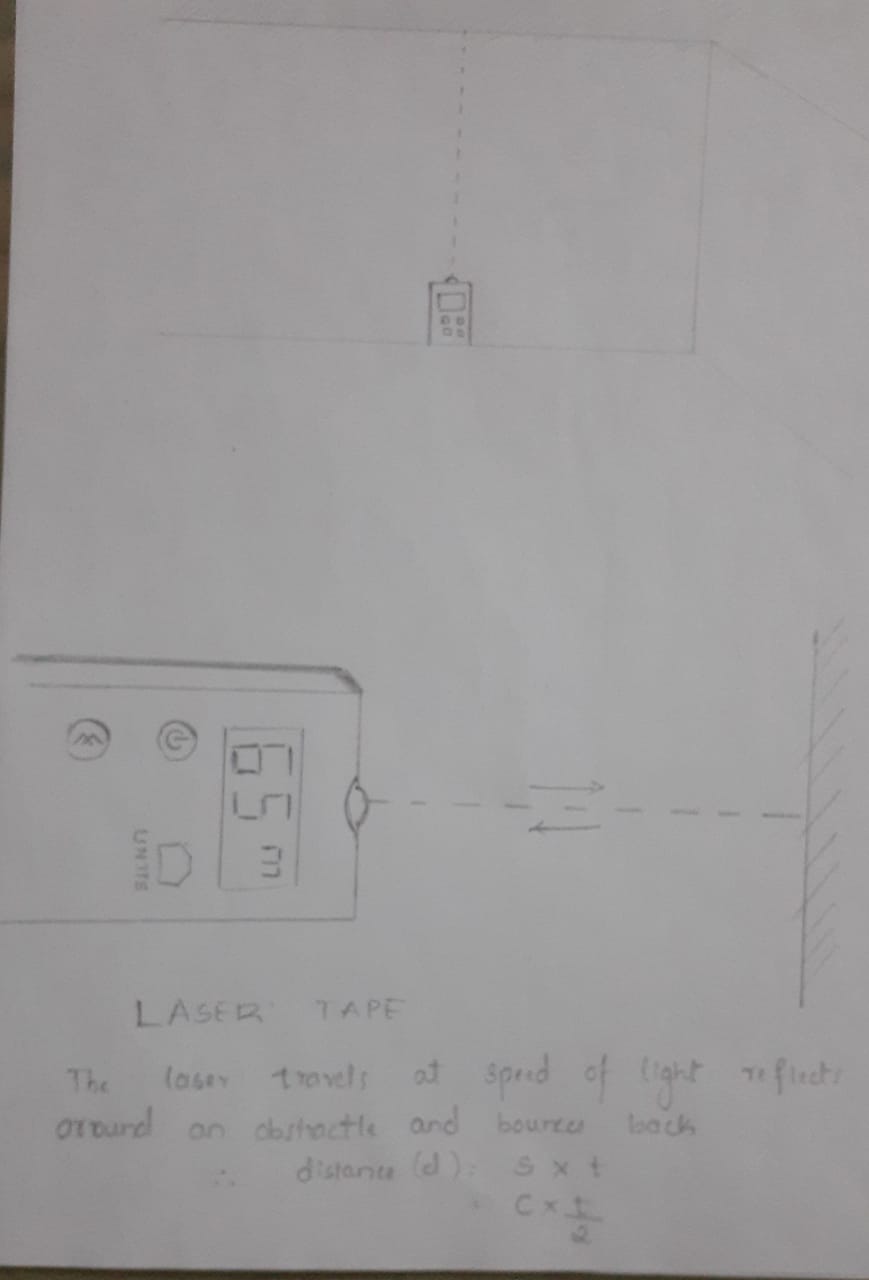 65 m
UNITS
LASER TAPE
The laser travels at speed of light reflects
around an obstractle and bounces back
∴ distance (d): s x t
C x t/2